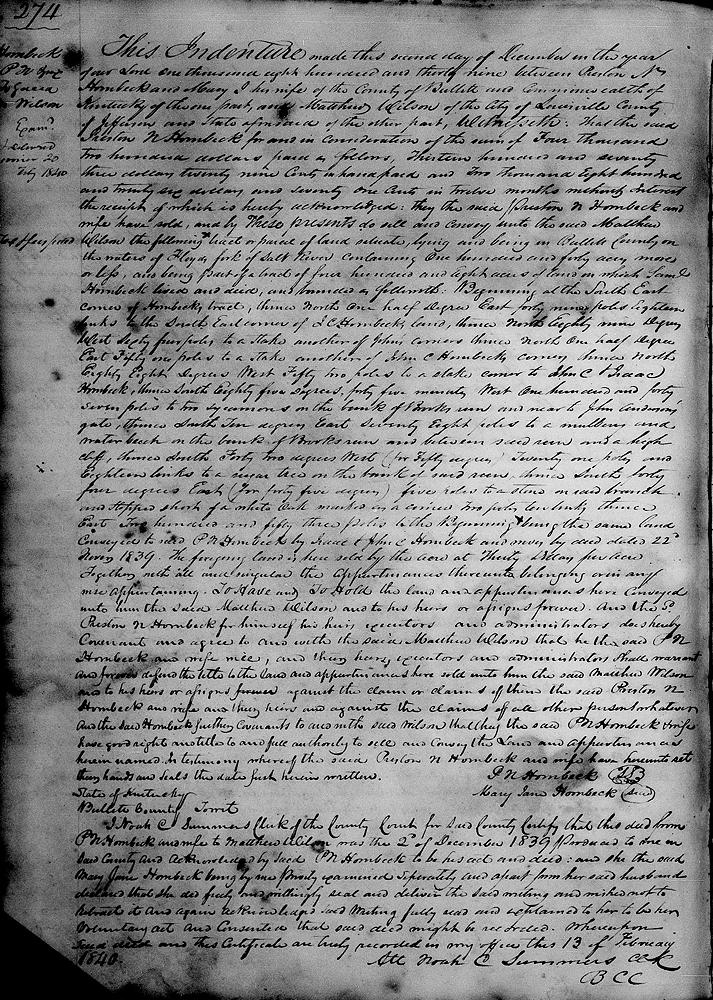 274
Hornbeck
P N &ux
To Deed
Wilson
Exam.d
& delivered
20
Feby 1840
This Indenture made this second day of December in the year
of our Lord One thousand eight hundred and thirty nine between Preston N
Hornbeck and Mary J his wife of the County of Bullitt and Commonwealth of
Kentucky of the one part, and Matthew Wilson of the City of Louisville County
of Jefferson and State aforesaid of the other part, Witnesseth: That the said
Preston N Hornbeck for and in Consideration of the sum of Four thousand
two hundred dollars paid as follows, Thirteen hundred and seventy
three dollars twenty nine Cents in hand paid and Two thousand Eight hundred
and twenty six dollars and seventy One Cents in Twelve months without interest
the receipt of which is hereby acknowledged: they the said Preston N Hornbeck and
wife have sold, and by These presents do sell and convey unto the said Matthew
Wilson the following tract or parcel of land situate, lying and being in Bullitt County on
the waters of Floyds fork of Salt River Containing One hundred and forty acres more
or less, and being part of a tract of four hundred and eight acres of land on which Saml
Hornbeck lived and died, and bounded as followeth: Beginning at the South East
corner of Hornbecks tract, thence North One half degree East forty nine poles Eighteen
links to the South East corner of J C Hornbecks land, thence North Eighty nine Degrees
West Sixty four poles to a stake another of Johns corners thence North One half degree
East Fifty one poles to a stake another of John C Hornbecks corners thence North
Eighty Eight degrees West Fifty two poles to a stake corner to John C & Isaac
Hornbeck, thence South Eighty five degrees, forty five minutes West One hundred and forty
seven poles to two sycamores on the bank of Brooks run and near to John Andersons
gate, thence South Ten degrees East Seventy Eight poles to a mulberry and
water beech on the bank of Brooks run and between said run and a high
cliff, thence South Forty two degrees West (for Fifty degrees) Twenty one poles and
Eighteen links to a sugar tree on the bank of said run thence South forty
four degrees East (for forty five degrees) five poles to a stone on said branch
and stopped short of a white Oak marked as a corner two poles ten links thence
East Two hundred and fifty three poles to the Beginning being the same land
Conveyed to said P N Hornbeck by Isaac & John C Hornbeck and wives by deed dated 22d
Novr 1839. The foregoing land is here sold by the acre at Thirty dollars per acre.
Together with all and singular the Appurtenances thereunto belonging or in any
wise appertaining. To Have and To Hold the land and appurtenances here Conveyed
unto him the said Matthew Wilson and to his heirs or assigns forever. And the Sd
Preston N Hornbeck for himself his heirs executors and administrators does hereby
Covenant and agree to and with the said Matthew Wilson that he the said P N
Hornbeck and wife will, and their heirs, executors and administrators shall warrant
and forever defend the title to the land and appurtenances here sold unto him the said Matthew Wilson
and to his heirs or assigns forever against the claim or claims of them the said Preston N
Hornbeck and wife and their heirs and against the claims of all other persons whatever
And the said Hornbeck further Covenants to and with the said Wilson that they the said P N Hornbeck & wife
have good right and title to and full authority to sell and Convey the Land and Appurtenances
herein named. In testimony whereof the said Preston N Hornbeck and wife have hereunto set
their hands and seals the date first herein written.
P N Hornbeck
Mary Jane Hornbeck (seal)
State of Kentucky
Bullitt County Towit
I Noah C Summers Clerk of the County Court for said County Certify that this deed from
P N Hornbeck and wife to Matthew Wilson was the 2d of December 1839 produced to me in
said County and Acknowledged by said P N Hornbeck to be his act and deed: and she the said
Mary Jane Hornbeck being by me privily examined separately and apart from her said husband
declared that she did freely and willingly seal and deliver the said writing and wished not to
retract it and again acknowledged said Writing fully read and explained to her to be her
Voluntary act and Consented that said deed might be recorded. Whereupon
said deed and this Certificate are truly recorded in my office this 13 of February
1840.
Att Noah C Summers Clk
B C C